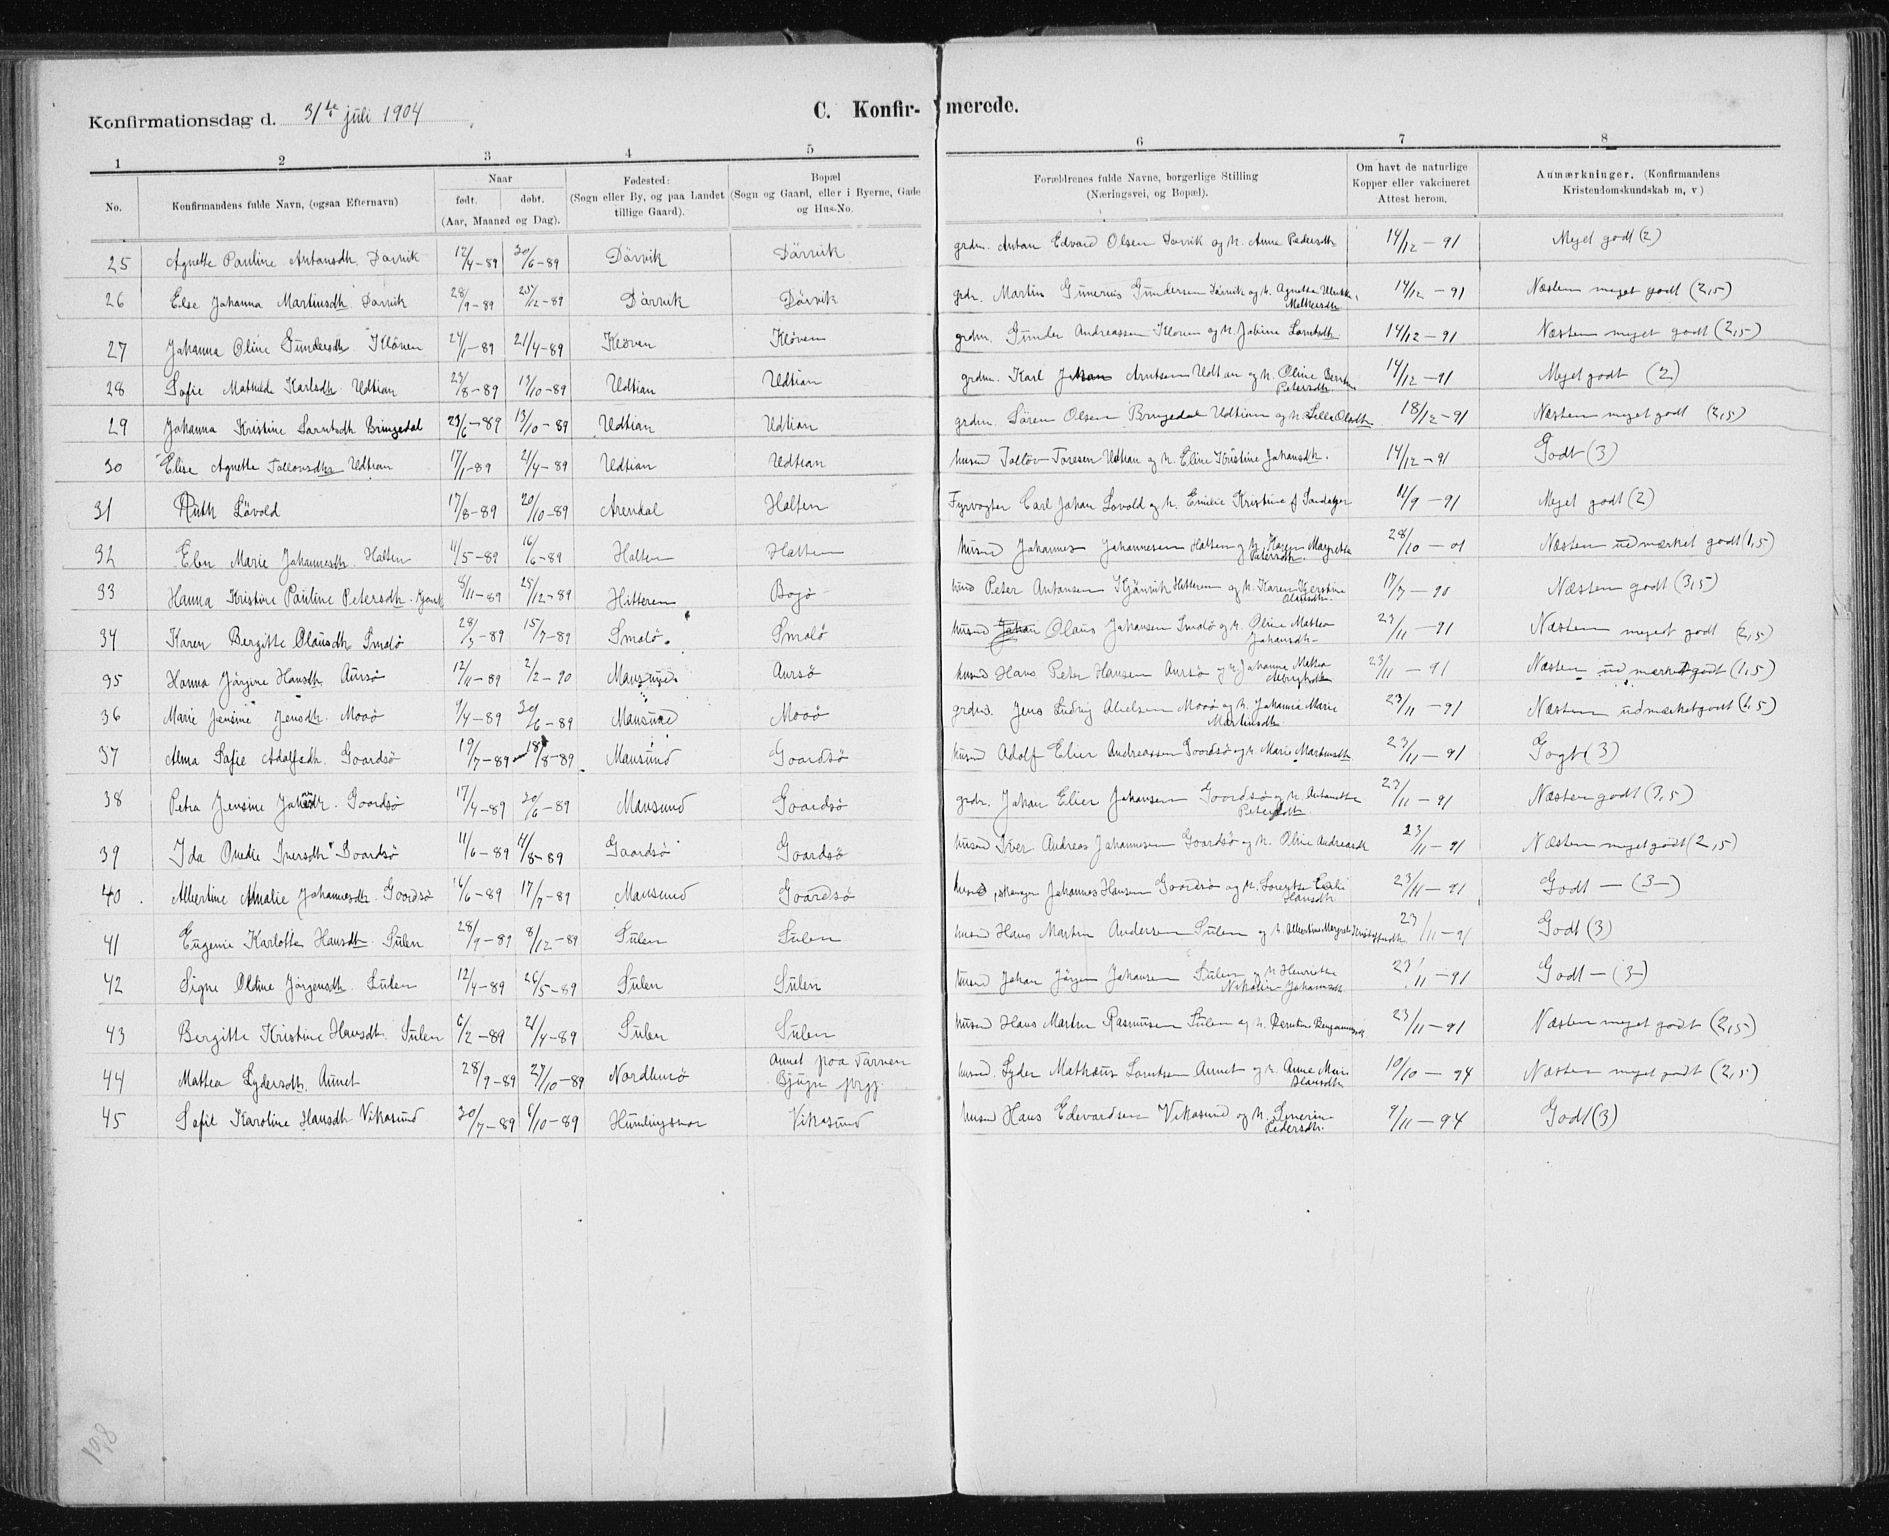 Konfirmationsdag d. 31te juli 1904
C. Konfirmerede.
1 2 3 4 5 6 7 8
No.
Konfirmandens fulde Navn, (ogsaa Efternavn)
Naar
født. døbt.
(Aar, Maaned og Dag).
Fødested:
(Sogn eller By, og paa Landet
tillige Gaard).
Bopæl
(Sogn og Gaard, eller i Byerne, Gade
og Hus-No.
Forældrenes fulde Navne, borgerlige Stilling
(Næringsvei, og Bopæl).
Om havt de naturlige
Kopper eller vakcineret
Attest herom.
Anmærkninger. (Konfirmandens
Kristendomskundskab m, v)
25 Agnette Pauline Antonsdh. Dørvik 12/4-89 30/6-89 Dørvik Dørvik grdm. Anton Edvard Olsen Dørvik og h. Anne Pedersdh 14/12-91 Meget godt (2)
26 Else Johanna Martinsdh. Dørvik 28/9-89 25/12-89 Dørvik Dørvik grdr. Martin Gunerius Gundersen Dørvik og h. Agnette 14/12-91 Næsten meget godt (2,5)
27 Johanna Oline Gundersdh. Kløven 24/1-89 21/4-89 Kløven Kløven grdm. Gunder Andreassen Kloven og h. Jabine Larntsdh 14/12-91 Næsten meget godt (2,5)
28 Sofie Mathilde Karlsdh. Udtian 25/8-89 13/10-89 Udtian Udtian grdm. Karl Johan Arntsen Udtian og h. Oline Petersdh. 14/12-91 Meget godt (2)
29 Johanna Kristine Sørntsdh Bringedal 23/6-89 13/10-89 Udtian Udtian grdm. Søren Olsen Bringedal Udtian og h. Olsdh 18/12-91 Næsten meget godt (2,5)
30 Elise Agnette Tollovsdh Udtian 17/1-89 21/4-89 Udtian Udtian husmd Tollov Toresen Udtian og h. Eline Kristine Johansdh. 14/12-91 Godt (3)
31 Ruth Løvold 17/8-89 20/10-89 Arendal Halten Fyrvogter Carl Johan Lovold og h. Emilie Kristine f. 11/9-91 Meget godt (2)
32 Elen Marie Johannesdh. Halten 11/5-89 16/6-89 Halten Halten husmd Johannes Johannesen Halten og h. Karen Margrethe Petersdh. 28/10-01 Næsten udmærket godt (1,5)
33 Hanna Kristine Pauline Petersdh. 8/11-89 25/12-89 Hitteren Bogø husmd Peter Antonsen Kjønvik Hitteren og h. Karen Kjerstine Olausdh. 17/7-90 Næsten godt (3,5)
34 Karen Bergitte Olausdh Smalø 28/3-89 15/7-89 Smalø. Smalø husmd Johan Olaus Johansen Smalø og h. Oline Mattea Johansdh. 23/11-91 Næsten meget godt (2,5)
35 Hanna Jørgine Hansdh. Aursø 12/11-89 2/2-90 Mausund Aursø husmd Hans Peter Hansen Aursø og h. Johanne Mattea 23/11-91 Næsten udmærket godt (1,5)
36 Marie Jensine Jensdh. Mooø 9/4-89 30/6-89 Mausund Mooø grdm. Jens Ludvig Abelsen Mooø og h. Johanna Marie Martinsdh 23/11-91 Næsten udmærket godt (1,5)
37 Alma Sofie Adolfsdh. Goardsø 19/7-89 18/8-89 Mausund Goardsø husmd Adolf Elier Andreassen Goordsø og h. Marie Martinsdh 23/11-91 Gogt (3)
38 Petra Jensine Johansdh. Goordsø 17/4-89 30/6-89 Mausund Goardsø grdr. Johan Elier Johansen Goordsø og h. Antonette Petersdh 23/11-91 Næsten godt (3,5)
39 Ida Onedie Iversdh. Goardsø 11/6-89 11/8-89 Gaardsø Goardsø husmd Iver Andreas Johannesen Goardsø og h. Oline Andreasdh 23/11-91 Næsten meget godt (2,5)
40 Albertine Amalie Johannesdh. Goordsø 16/6-89 17/7-89 Mausund Goardsø husmd, Johannes Hansen Goardsø og h. Hansdh 23/11-91 Godt - (3-)
41 Eugenie Karlotte Hansdh. Sulen 28/9-89 8/12-89 Sulen Sulen husmd Hans Martin Andersen Sulen og h. Albertine Margrete 23/11-91 Godt (3)
42 Signe Oldine Jørgensdh. Sulen 12/4-89 26/5-89 Sulen Sulen husmd Johan Jørgen Johansen Sulen og h. Henriette Nikolin Johansdh. 23/11-91 Godt - (3-)
43 Bergitte Kristine Hansdh. Sulen 6/2-89 21/4-89 Sulen Sulen husmd Hans Martin Rasmusen Sulen og h. Berntine 23/11-91 Næsten meget godt (2,5)
44 Mattea Lydersdh. Aunet 28/9-89 27/10-89 Nordbusø Aunet paa Tarven Bjugn prgj. husmd. Lyder Mathæus Larntsen Aunet og h. Anne Marie Olausdh 10/10-94 Næsten meget godt (2,5)
45 Sofie Karoline Hansdh. Vikasund 30/7-89 6/10-89 Humlingsvær Vikasund husmd Hans Edevardsen Vikasund og h. Severine Pedersdh. 9/11-94 Godt (3)
198